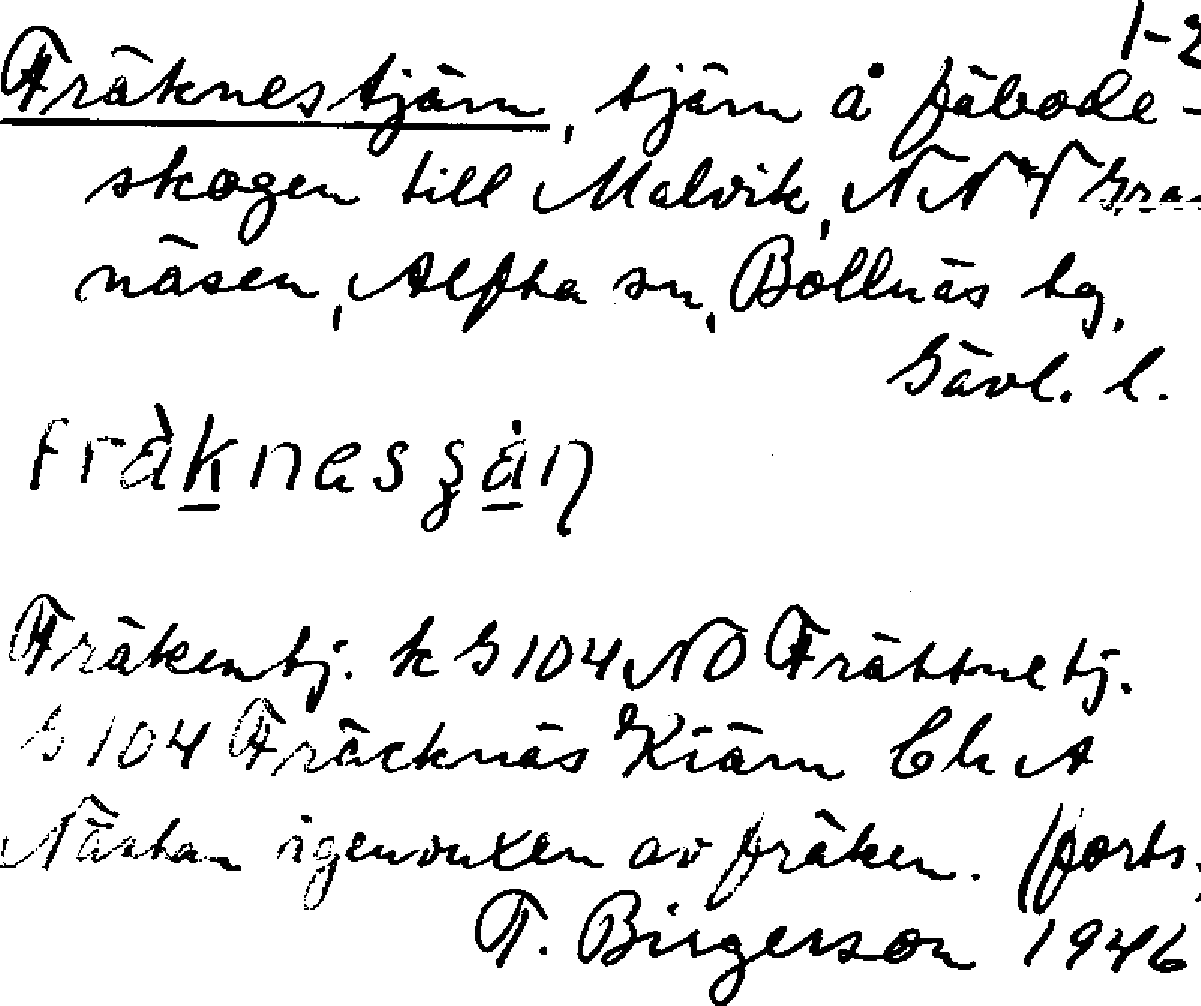 1-2
Fräknestjärn, tjärn å fäbode-
skogen till Malvik, NNV Gran
näsen, Alfta sn, Bollnäs hg,
Gävl. l.
fräknesʒän
Fräkentj. k G 104 NO Frättnetj.
G 104 Fräcknäs Kiärn Ch A
Nästan igenvuxen av fräken. (forts.
F. Birgerson 1946